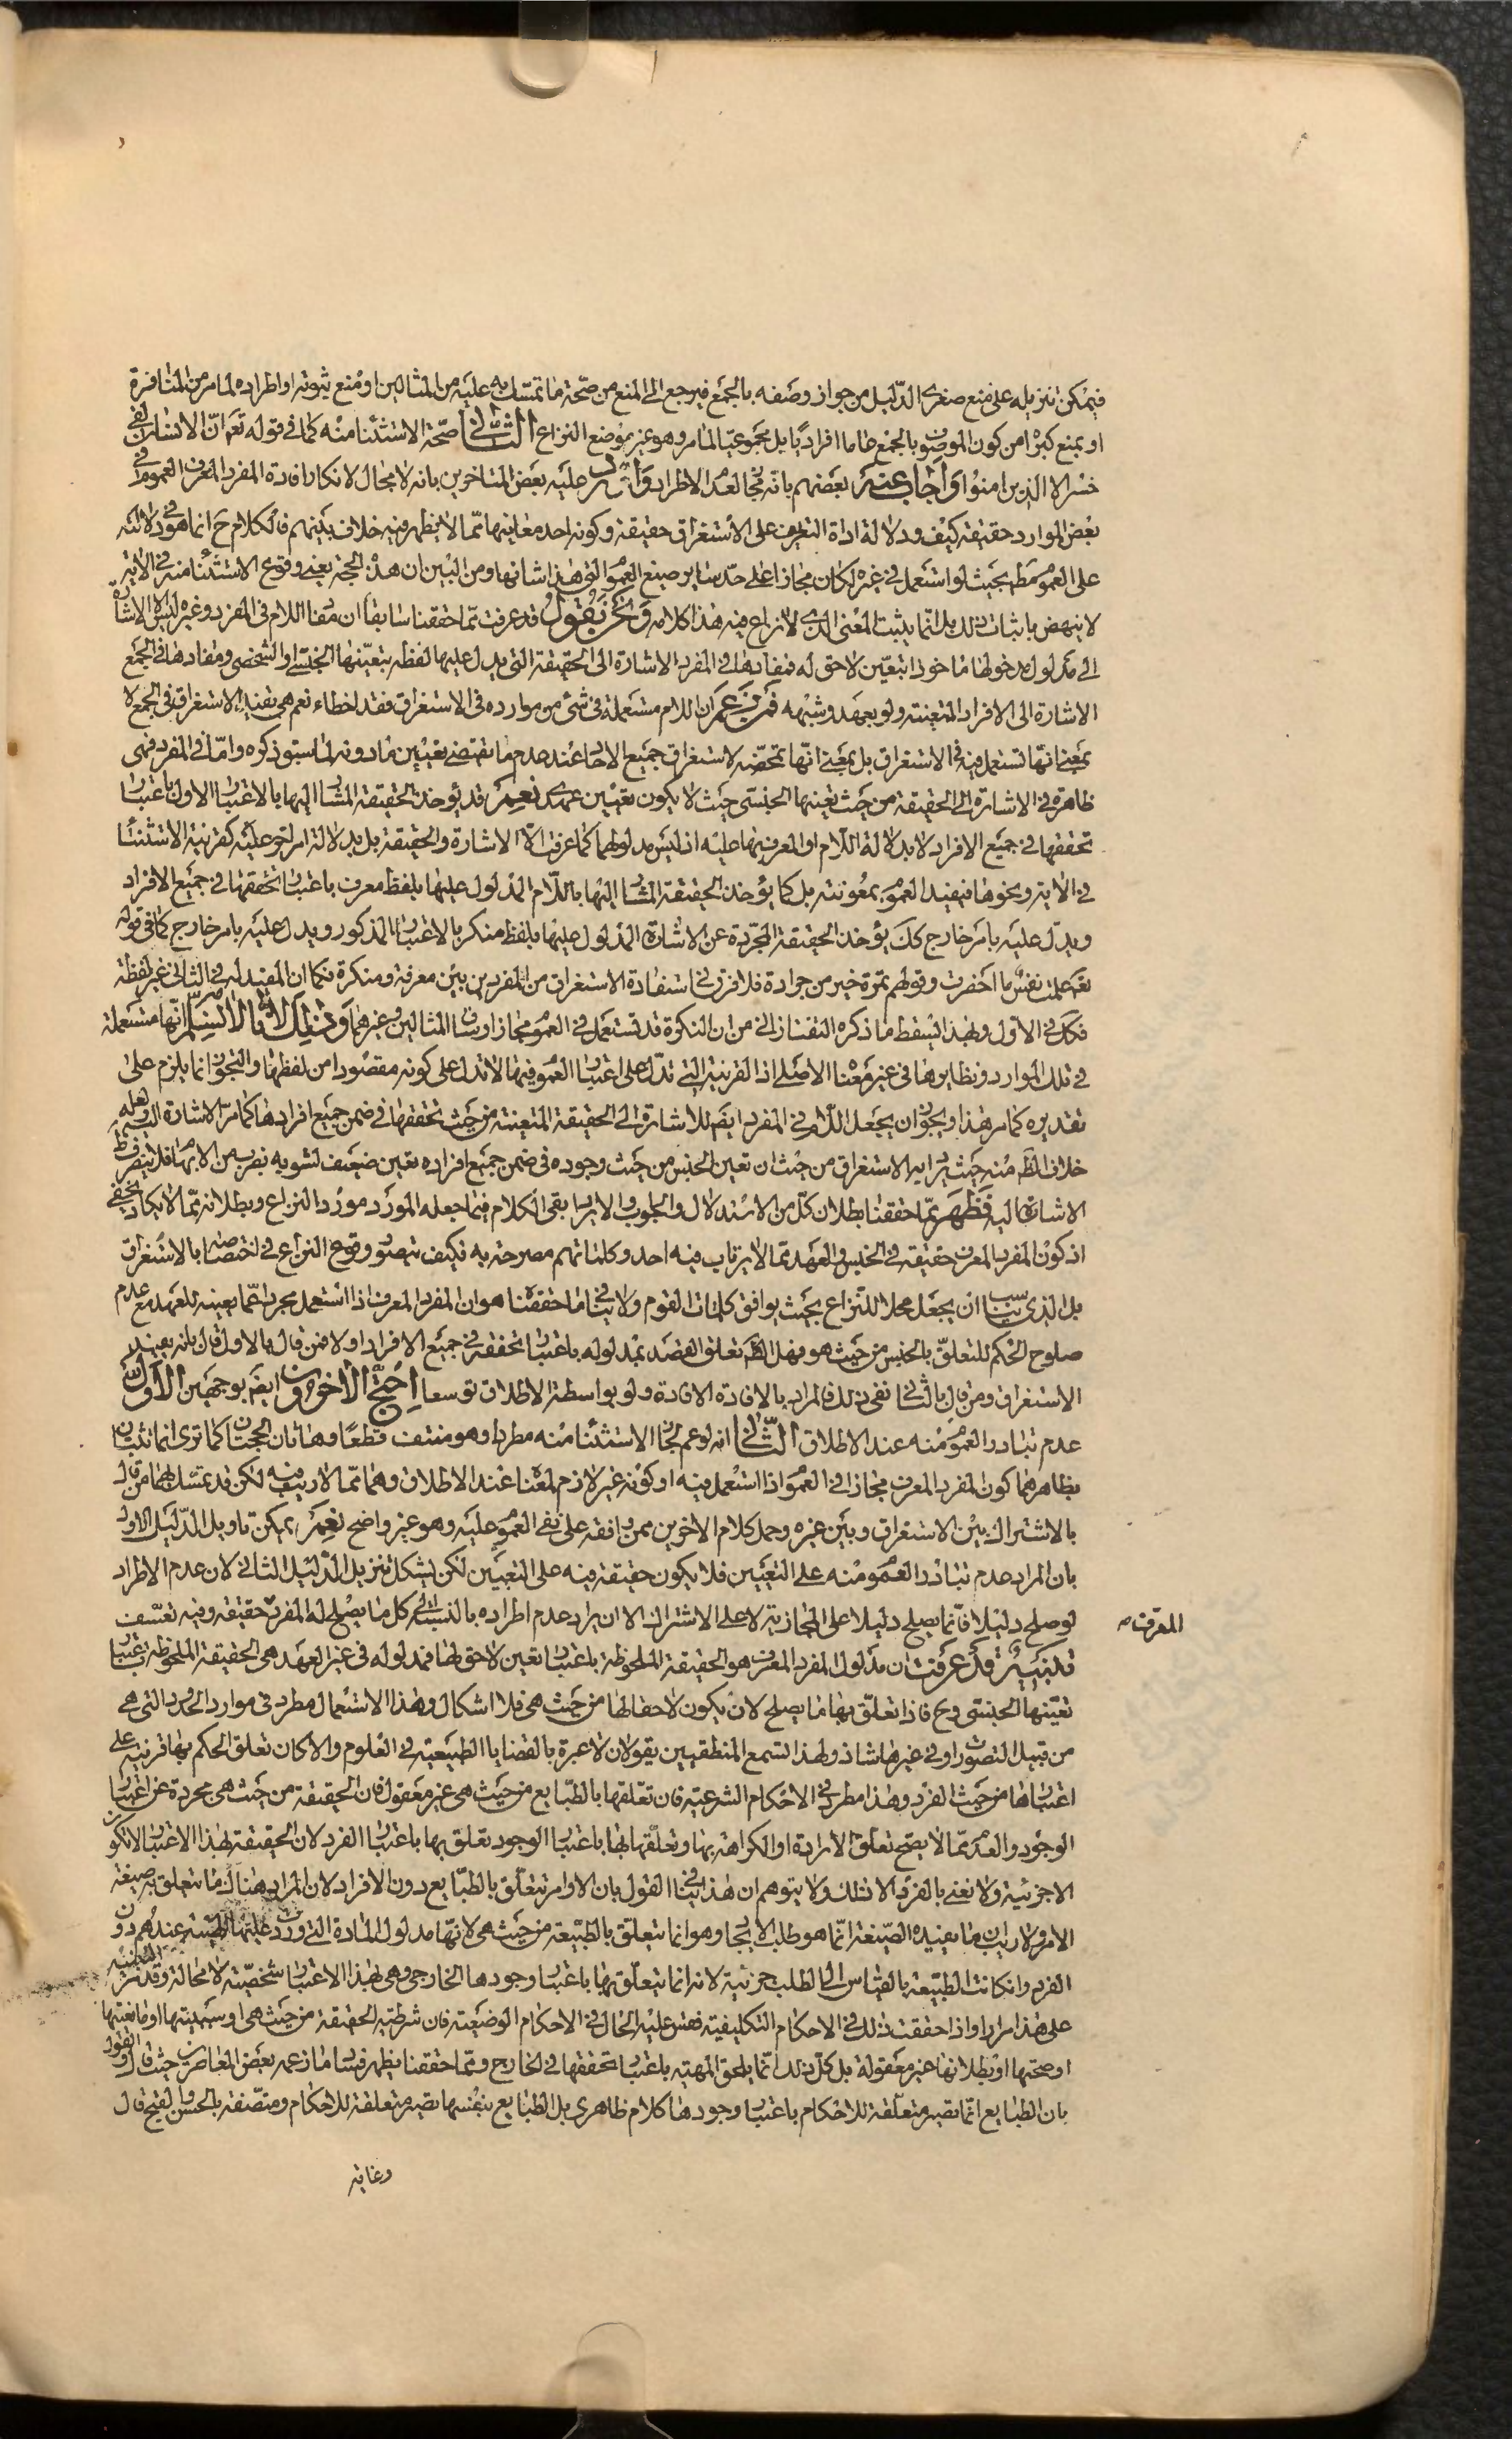 فيمكن تنزيله على منع صغرى الدليل من جواز وصفه بالجمع فيرجع الى المنع من صحة ما تمسك به عليه من المثالين او منع ثبوته او اطراده لما مر من المنافرة
او بمنع كبراه من كون الموصوف بالجمع عاما افراديا بل مجموعيا لما مر وهو غير موضع النزاع الثانى صحة الاستثناء منه كما فى قوله تعالى ان الانسان لفى
خسر الا الذين امنوا واجاب عنه بعضهم بانه مجاز لعدم الاطراد واورد عليه بعض المتاخرين بانه لا مجال لانكار افادة المفرد المعرف العموم فى
بعض الموارد حقيقة كيف ودلالة اداة التعريف على الاستغراق حقيقة وكونه احد معانيها مما لا يظهر فيه خلاف بينهم فالكلام ح انما هو فى دلالته
على العموم مط بحيث لو استعمل فى غيره لكان مجازا على حد ساير صيغ العموم التى هذا شانها ومن البين ان هذه الحجة يعنى وقوع الاستثناء منه فى الاية
لا ينهض باثبات ذلك بل انما يثبت المعنى الذى لا نزاع فيه هذا كلامه ونحن نقول قد عرفت مما حققنا سابقا ان مفاد اللام فى المفرد وغيره ليس الا الاشارة
الى مدلول مدخولها ماخوذا بتعين لاحق له فمفادها فى المفرد الاشارة الى الحقيقة التى يدل عليها لفظه بتعينها الجنسى او الشخصى ومفادها فى الجمع
الاشارة الى الافراد المتعينة ولو بعهد وشبهه فمن زعم ان اللام مستعملة فى شئ من موارده فى الاستغراق فقد اخطاء نعم هى تفيد الاستغراق فى الجمع لا
بمعنى انها تستعمل فيه فى الاستغراق بل بمعنى انها تمحضه لاستغراق جميع الاحاد عند عدم ما يقتضى تعيين مادونه لما سبق ذكره واما فى المفرد فهى
ظاهرة فى الاشارة الى الحقيقة من حيث تعينها الجنسى حيث لا يكون تعيين عهدى نعم قد يؤخذ الحقيقة المشار اليها بالاعتبار الاول باعتبار
تحققها فى جميع الافراد لا بدلالة اللام او المعرف بها عليه اذ ليس مدلولهما كما عرفت الا الاشارة والحقيقة بل بدلالة امر لحق عليه كقرينة الاستثناء
فى الاية ونحوها فيفيد العموم بمعونته بل كما يؤخذ الحقيقة المشار اليها باللام المدلول عليها بلفظ معرف باعتبار تحققها فى جميع الافراد
ويدل عليه بامر خارج كك يؤخذ الحقيقة المجردة عن الاشارة المدلول عليها بلفظ منكر بالاعتبار المذكور ويدل عليه بامر خارج كما فى قوله
تعالى علمت نفس ما احضرت وقولهم تمرة خير من جرادة فلا فرق فى استفادة الاستغراق من المفرد بين معرفة ومنكرة فكما ان المفيد له فى الثانى غير لفظة
فكك فى الاول وبهذا يسقط ما ذكره التفتازانى من ان النكرة قد تستعمل فى العموم مجازا وساق المثالين وغيرهما وذلك لانا لا نسلم انها مستعملة
فى تلك الموارد ونظايرها فى غير معناها الاصلى اذ القرينة التى تدل على اعتبار العموم فيها لا تدل على كونه مقصودا من لفظها والتجوز انما يلزم على
تقديره كما مر هذا ويجوز ان يجعل اللام فى المفرد ايضا للاشارة الى الحقيقة المتعينة من حيث تحققها فى ضمن جميع افرادها كما مر الاشارة اليه ولعله
خلاف الظ منه حيث يراد به الاستغراق من حيث ان تعين الجنس من حيث وجوده فى ضمن جميع افراده تعين ضعيف لشوبه بضرب من الابهام فلا ينصرف ظ
الاشارة اليه فظهر مما حققنا بطلان كل من الاستدلال والجواب والايراد بقى الكلام فيما جعله المورد مورد النزاع وبطلانه مما لا يكاد يخفى
اذ كون المفرد المعرف حقيقة فى الجنس والعهد مما لا يرتاب فيه احد وكلماتهم مصرحة به فكيف يتصور وقوع النزاع فى اختصاصه بالاستغراق
بل الذى يناسب ان يجعل محلا للنزاع بحيث يوافق كلمات القوم ولا ينافى ما حققناه هو ان المفرد المعرف اذا استعمل مجردا عما يعينه للعهد مع عدم
صلوح الحكم للتعلق بالجنس من حيث هو فهل الظ تعلق القصد بمدلوله باعتبار تحققه فى جميع الافراد او لا فمن قال بالاول قال بانه يفيد
الاستغراق ومن قال بالثانى نفى ذلك فالمراد بالافادة الافادة ولو بواسطة الاطلاق توسعا احتج الاخرون ايضا بوجهين الاول
عدم تبادر العموم منه عند الاطلاق الثانى انه لو عم لجاز الاستثناء منه مطردا وهو منتف قطعا وهاتان الحجتان كما ترى انما تثبتان
بظاهرهما كون المفرد المعرف مجازا فى العموم اذا استعمل فيه او كونه غير لازم لمعناه عند الاطلاق وهما مما لا ريب فيه لكن قد تمسك بهما من قال
بالاشتراك بين الاستغراق وبين غيره وحمل كلام الاخرين ممن وافقه على نفى العموم عليه وهو غير واضح نعم يمكن تاويل الدليل الاول
بان المراد عدم تبادر العموم منه على التعيين فلا يكون حقيقة فيه على التعيين لكن يشكل تنزيل الدليل الثانى لان عدم الاطراد
لو صلح دليلا فانما يصلح دليلا على المجازية لا على الاشتراك الا ان يراد عدم اطراده بالنسبة الى كل ما يصلح له المفرد حقيقة وفيه تعسف
المعرف ص
تنبيه قد عرفت ان مدلول المفرد المعرف هو الحقيقة الملحوظة باعتبار تعين لاحق لها فمدلوله فى غير العهد هى الحقيقة الملحوظة باعتبار
تعينها الجنسى وح فاذا تعلق بها ما يصلح لان يكون لاحقا لها من حيث هى فلا اشكال وهذا الاستعمال مطرد فى موارد الحدود التى هى
من قبيل التصور او فى غيرها شاذ ولهذا تسمع المنطقيين يقولون لا عبرة بالقضايا الطبيعية فى العلوم والا كان تعلق الحكم بها قرينة على
اعتبارها من حيث الفرد وهذا مطرد فى الاحكام الشرعية فان تعلقها بالطبايع من حيث هى غير معقول فان الحقيقة من حيث هى مجردة عن اعتبار
الوجود والعدم مما لا يصح تعلق الارادة او الكراهة بها وتعلقها بها باعتبار الوجود تعلق بها باعتبار الفرد لان الحقيقة بهذا الاعتبار لا تكون
الا جزئية ولا نعنى بالفرد الا ذلك ولا يتوهم ان هذا ينافى القول بان الاوامر تتعلق بالطبايع دون الافراد لان المراد هناك ما يتعلق به صيغة
الامر ولا ريب ان ما يفيده الصيغة انما هو طلب الايجاد وهو انما يتعلق بالطبيعة من حيث هى لانها مدلول المادة التى ورد عليها الهيئة عندهم دون
الفرد وان كانت الطبيعة بالقياس الى الطلب جزئية لانه انما يتعلق بها باعتبار وجودها الخارجى وهى بهذا الاعتبار شخصية لا محالة وقد مر التنبيه
على هذا مرارا واذا حققت ذلك فى الاحكام التكليفية فقس عليه الحال فى الاحكام الوضعية فان شرطية الحقيقة من حيث هى او سببيتها او مانعيتها
او صحتها او بطلانها غير معقولة بل كل ذلك انما يلحق المهية باعتبار تحققها فى الخارج ومما حققنا يظهر فساد ما زعمه بعض المعاصرين حيث قال والقول
بان الطبايع انما تصير متعلقة للاحكام باعتبار وجودها كلام ظاهرى بل الطبايع بنفسها تصير متعلقة للاحكام ومتصفة بالحسن والقبح قال
وغاية